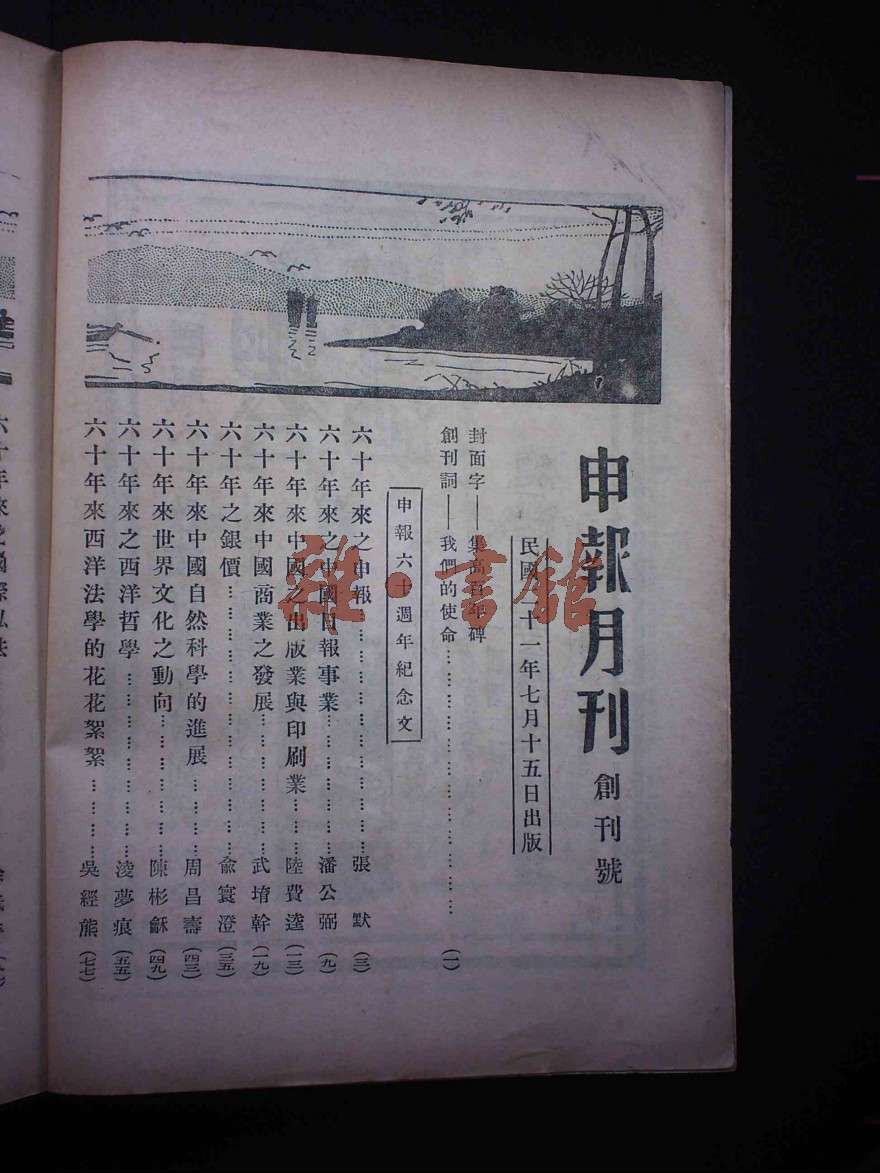 申報月刊 創刊號
民國二十一年七月十五日出版
封面字——集高貞碑
創刊詞——我們的使命……………………………………(一)
申報六十週年紀念文
六十年來之申報……………………………張　默(三)
六十年來之中國日報事業……………潘公弼(九)
六十年來中國之出版業與印刷業……陸費逵(一三)
六十年來中國商業之發展……………武堉幹(一九)
六十年之銀價……………………………俞寰澄(三五)
六十年來中國自然科學的進展………周昌壽(四三)
六十年來世界文化之動向……………陳彬龢(四九)
六十年來之西洋哲學…………………淩夢痕(五五)
六十年來西洋法學的花花絮絮………吳經熊(七七)
雜·書館